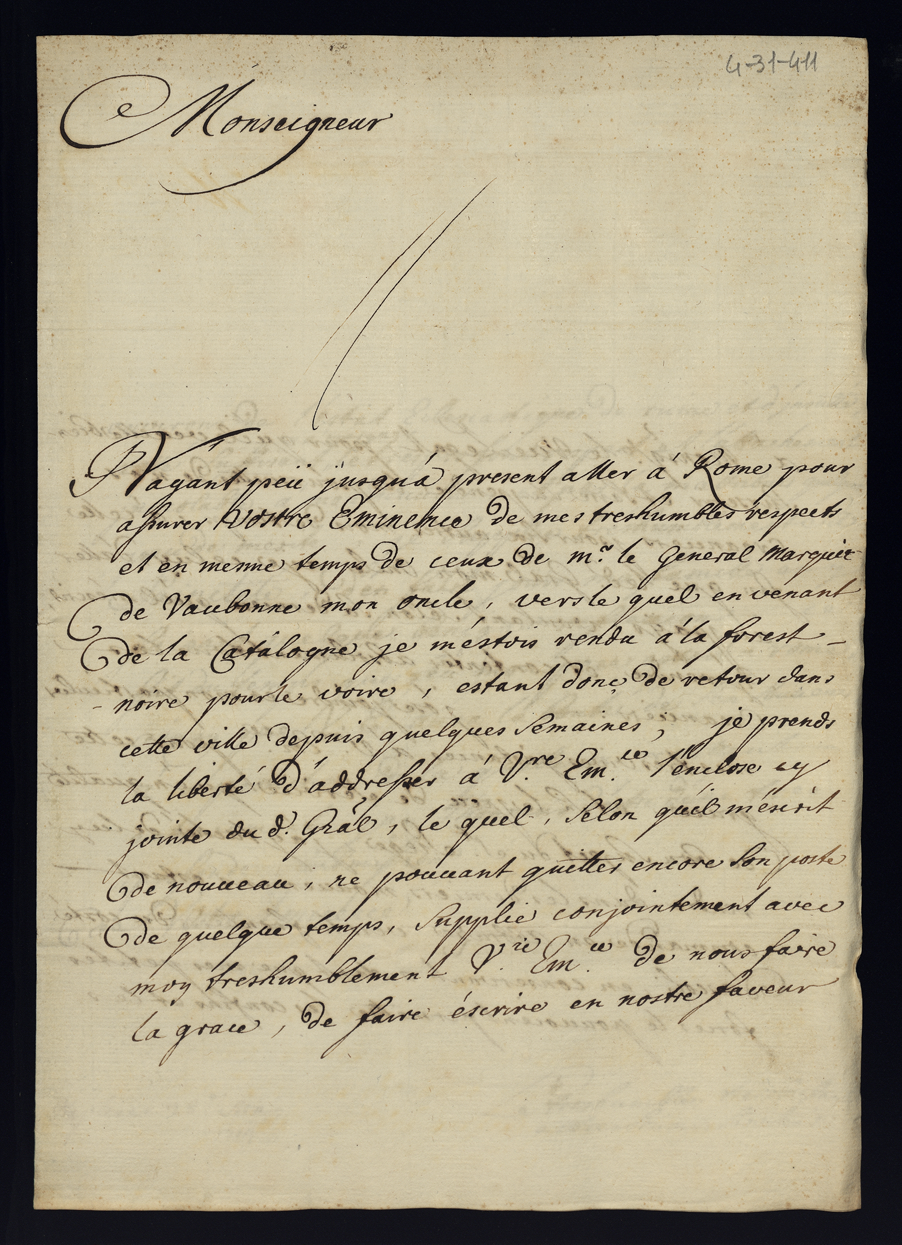 4-31-411
Monseigneur
N'ayant peü jusqu'à present aller à Rome pour
assurer Vostre Eminence de mes treshumbles respects
et en menne temps de ceux de mr. le General Marquis
de Vaubonne mon oncle, vers le quel en venant
de la Catalogne je m'éstois rendu à la forest
noire pour le voire, estant donc de retour dans
cette ville depuis quelques semaines, je prends
la liberté d'addresser à Vre. Emce. l'enclose cy
jointe du d. Gnãl, le quel, selon qu'il m'éscrit
de nouveau, ne pouvant quitter encore son poste
de quelque temps, supplie conjointement avec
moy treshumblement Vre. Emce. de nous faire
la grace, de faire éscrire en nostre faveur